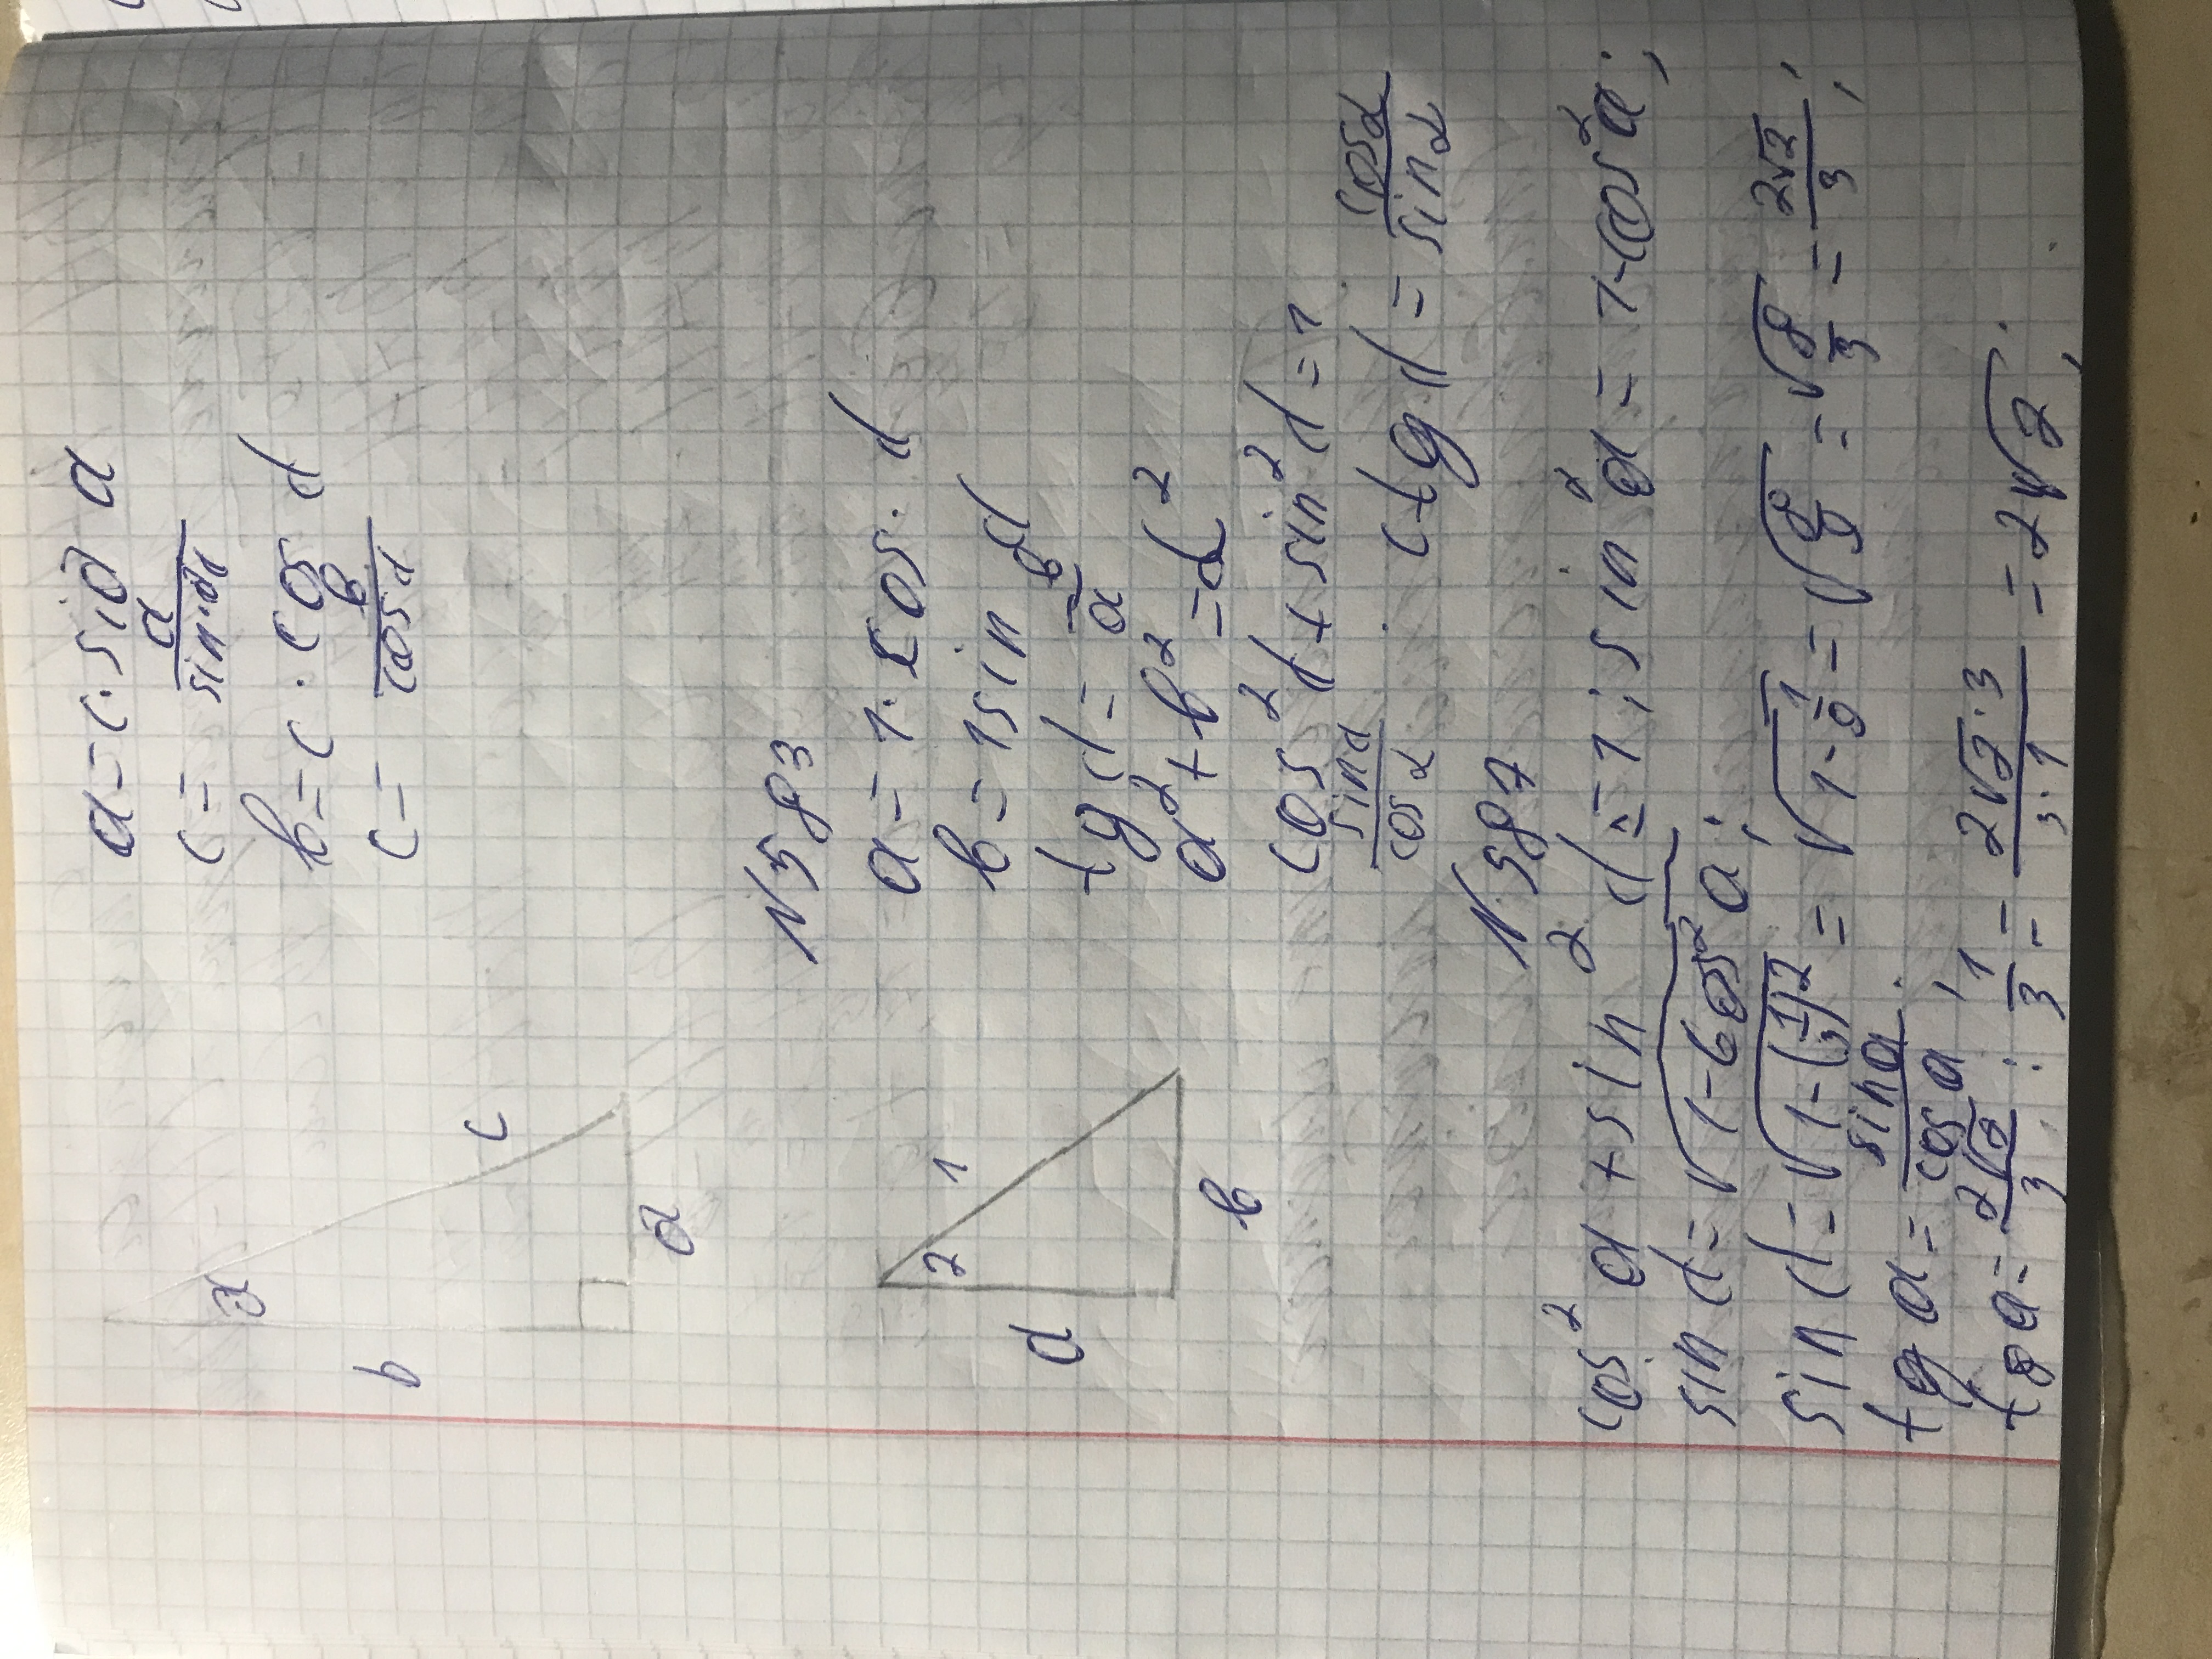 a = c · sin α
c = a/sin·α
b = c · cos α
c = b/cos α
α
c
b
a
N583
a = 1 · cos · α
b = 1 sin α
tg α = b/a
a² + b² = c²
2
1
a
b
cos² α + sin² α = 1
sin α/cos α
ctg α = cos α/sin α
N587
cos² α + sin² α = 1; sin² α = 1 - cos² α;
sin α = √(1 - cos² α);
sin α = √(1 - (1/3)²) = √(1 - 1/9) = √(8/9) = √8/3 = 2√2/3;
tg α = sin α/cos α;
tg α = 2√2/3 : 1/3 = 2√2·3/3·1 = 2√2;